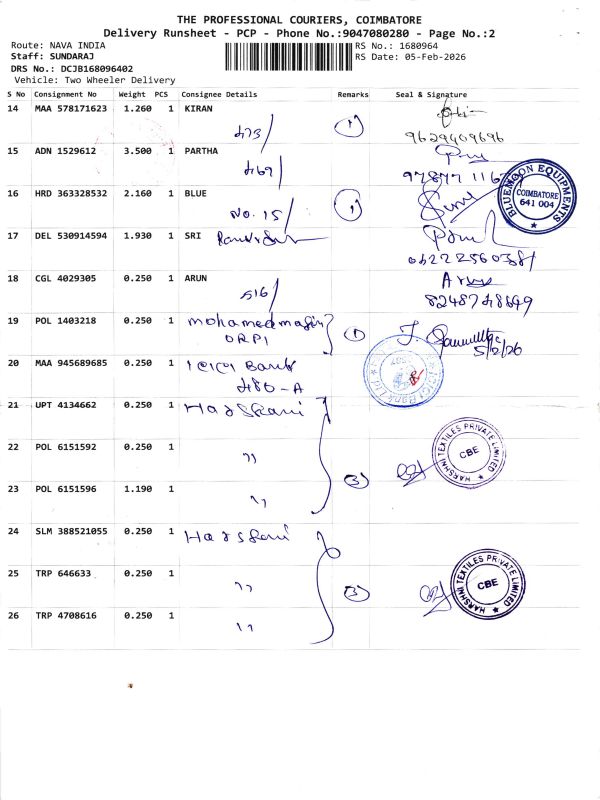 THE PROFESSIONAL COURIERS, COIMBATORE
Delivery Runsheet - PCP - Phone No.:9047080280 - Page No.:2
Route: NAVA INDIA
RS No.: 1680964
Staff: SUNDARAJ
RS Date: 05-Feb-2026
DRS No.: DCJB168096402
Vehicle: Two Wheeler Delivery
S No Consignment No Weight PCS Consignee Details Remarks Seal & Signature
14 MAA 578171623 1.260 1 KIRAN
473/ 1
9629409696
15 ADN 1529612 3.500 1 PARTHA
469/
16 HRD 363328532 2.160 1 BLUE
NO. 15/ 1
BLUEMOON EQUIPMENTS
COIMBATORE
641 004
17 DEL 530914594 1.930 1 SRI
18 CGL 4029305 0.250 1 ARUN
516/
Arun
8248748649
19 POL 1403218 0.250 1
ORP1 1
5/2/26
20 MAA 945689685 0.250 1 ICICI Bank
480-A
21 UPT 4134662 0.250 1 Harshani
22 POL 6151592 0.250 1 "
3
HARSHNI TEXTILES PRIVATE LIMITED
CBE
23 POL 6151596 1.190 1 "
24 SLM 388521055 0.250 1 Harshani
25 TRP 646633 0.250 1 "
3
HARSHNI TEXTILES PRIVATE LIMITED
CBE
26 TRP 4708616 0.250 1 "